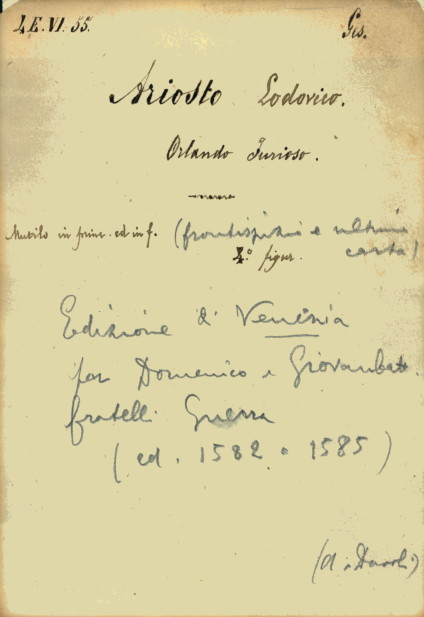 4.E.VI.55. Ges.
Ariosto Lodovico.
Orlando Furioso.
Mutilo in princ. ed in f. (frontispizio e ultima
4.° figur. carta)
Edizione di Venezia
per Domenico e Giovanbatt.
fratelli Guerra
(ed. 1582 o 1585)